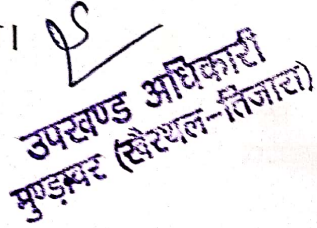 ।
उपखण्ड अधिकारी
मुण्डावर (खैरथल-तिजारा)